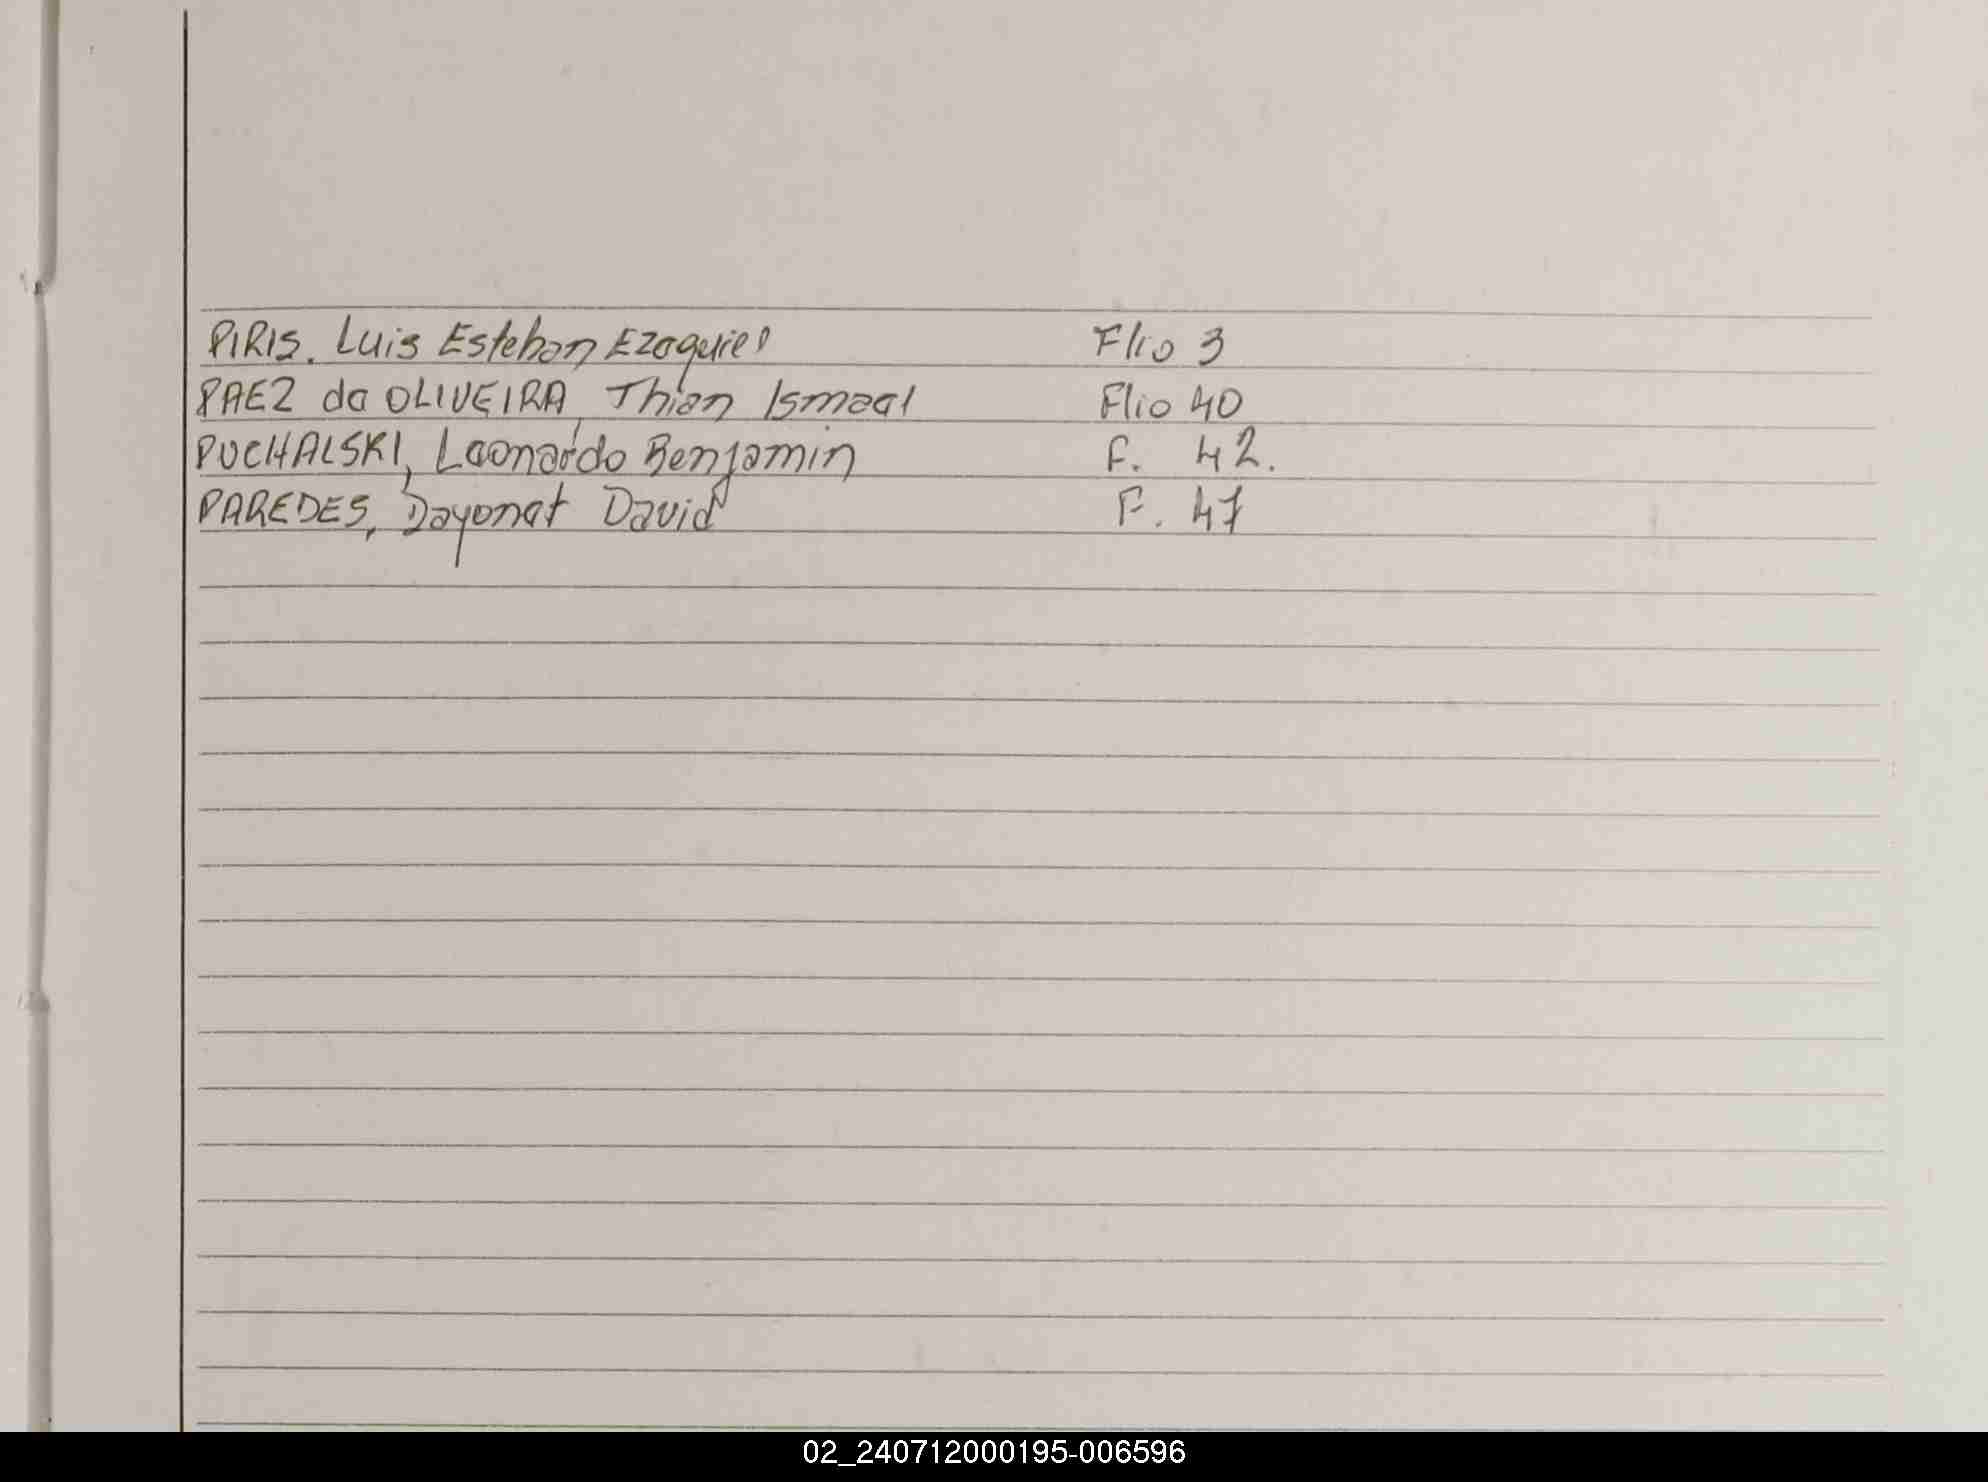 PIRIS. Luis Esteban Ezequiel Flio 3
PAEZ de OLIVEIRA, Thian Ismael Flio 40
PUCHALSKI, Leonardo Benjamin F. 42.
PAREDES, Dayonat David F. 47
02_240712000195-006596